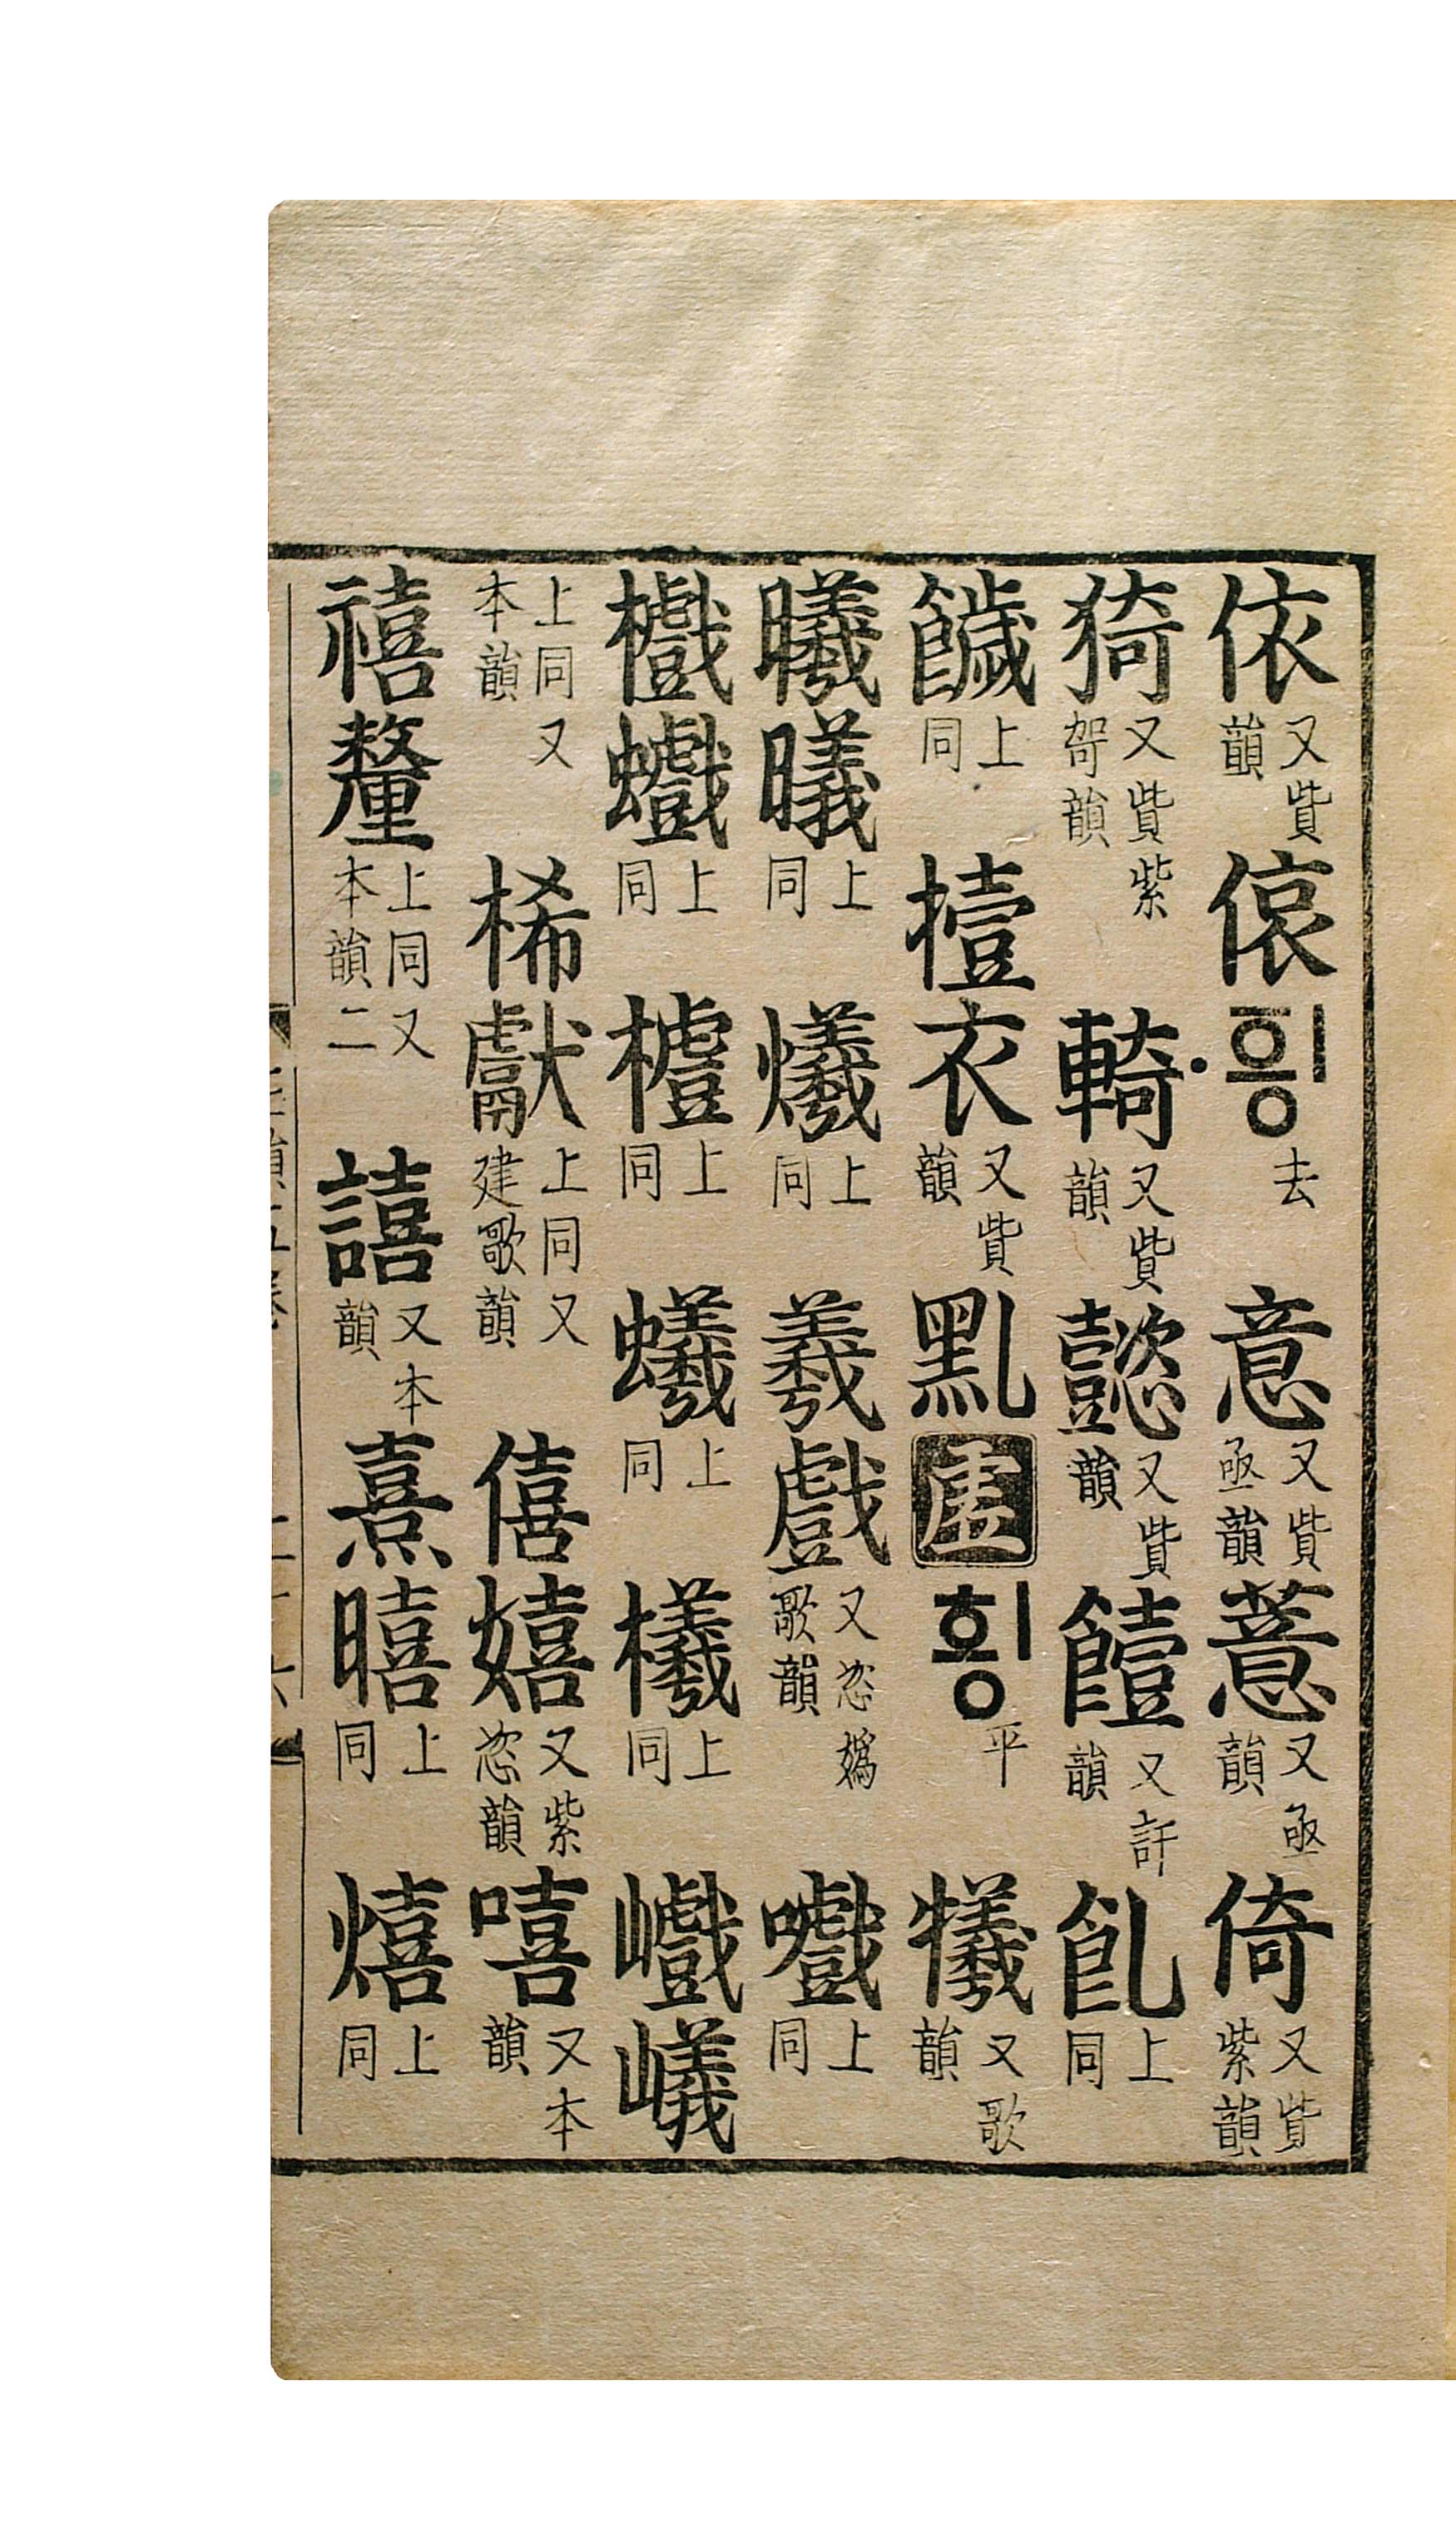 依又貲韻偯·ᅙᅴᆼ去意又貲亟韻薏又亟韻倚又貲紫韻
猗又貲紫哿韻輢又貲韻懿又貲韻饐又訐韻上同
饖上同撎衣又貲韻虛힁平犧又歌韻
曦上同爔上同羲戲又恣嬀歌韻嚱上同
上同上同上同上同巇
上同又本韻桸獻上同又建歌韻僖嬉又紫恣韻嘻又本韻
禧釐上同又本韻二譆又本韻熹暿上同熺上同